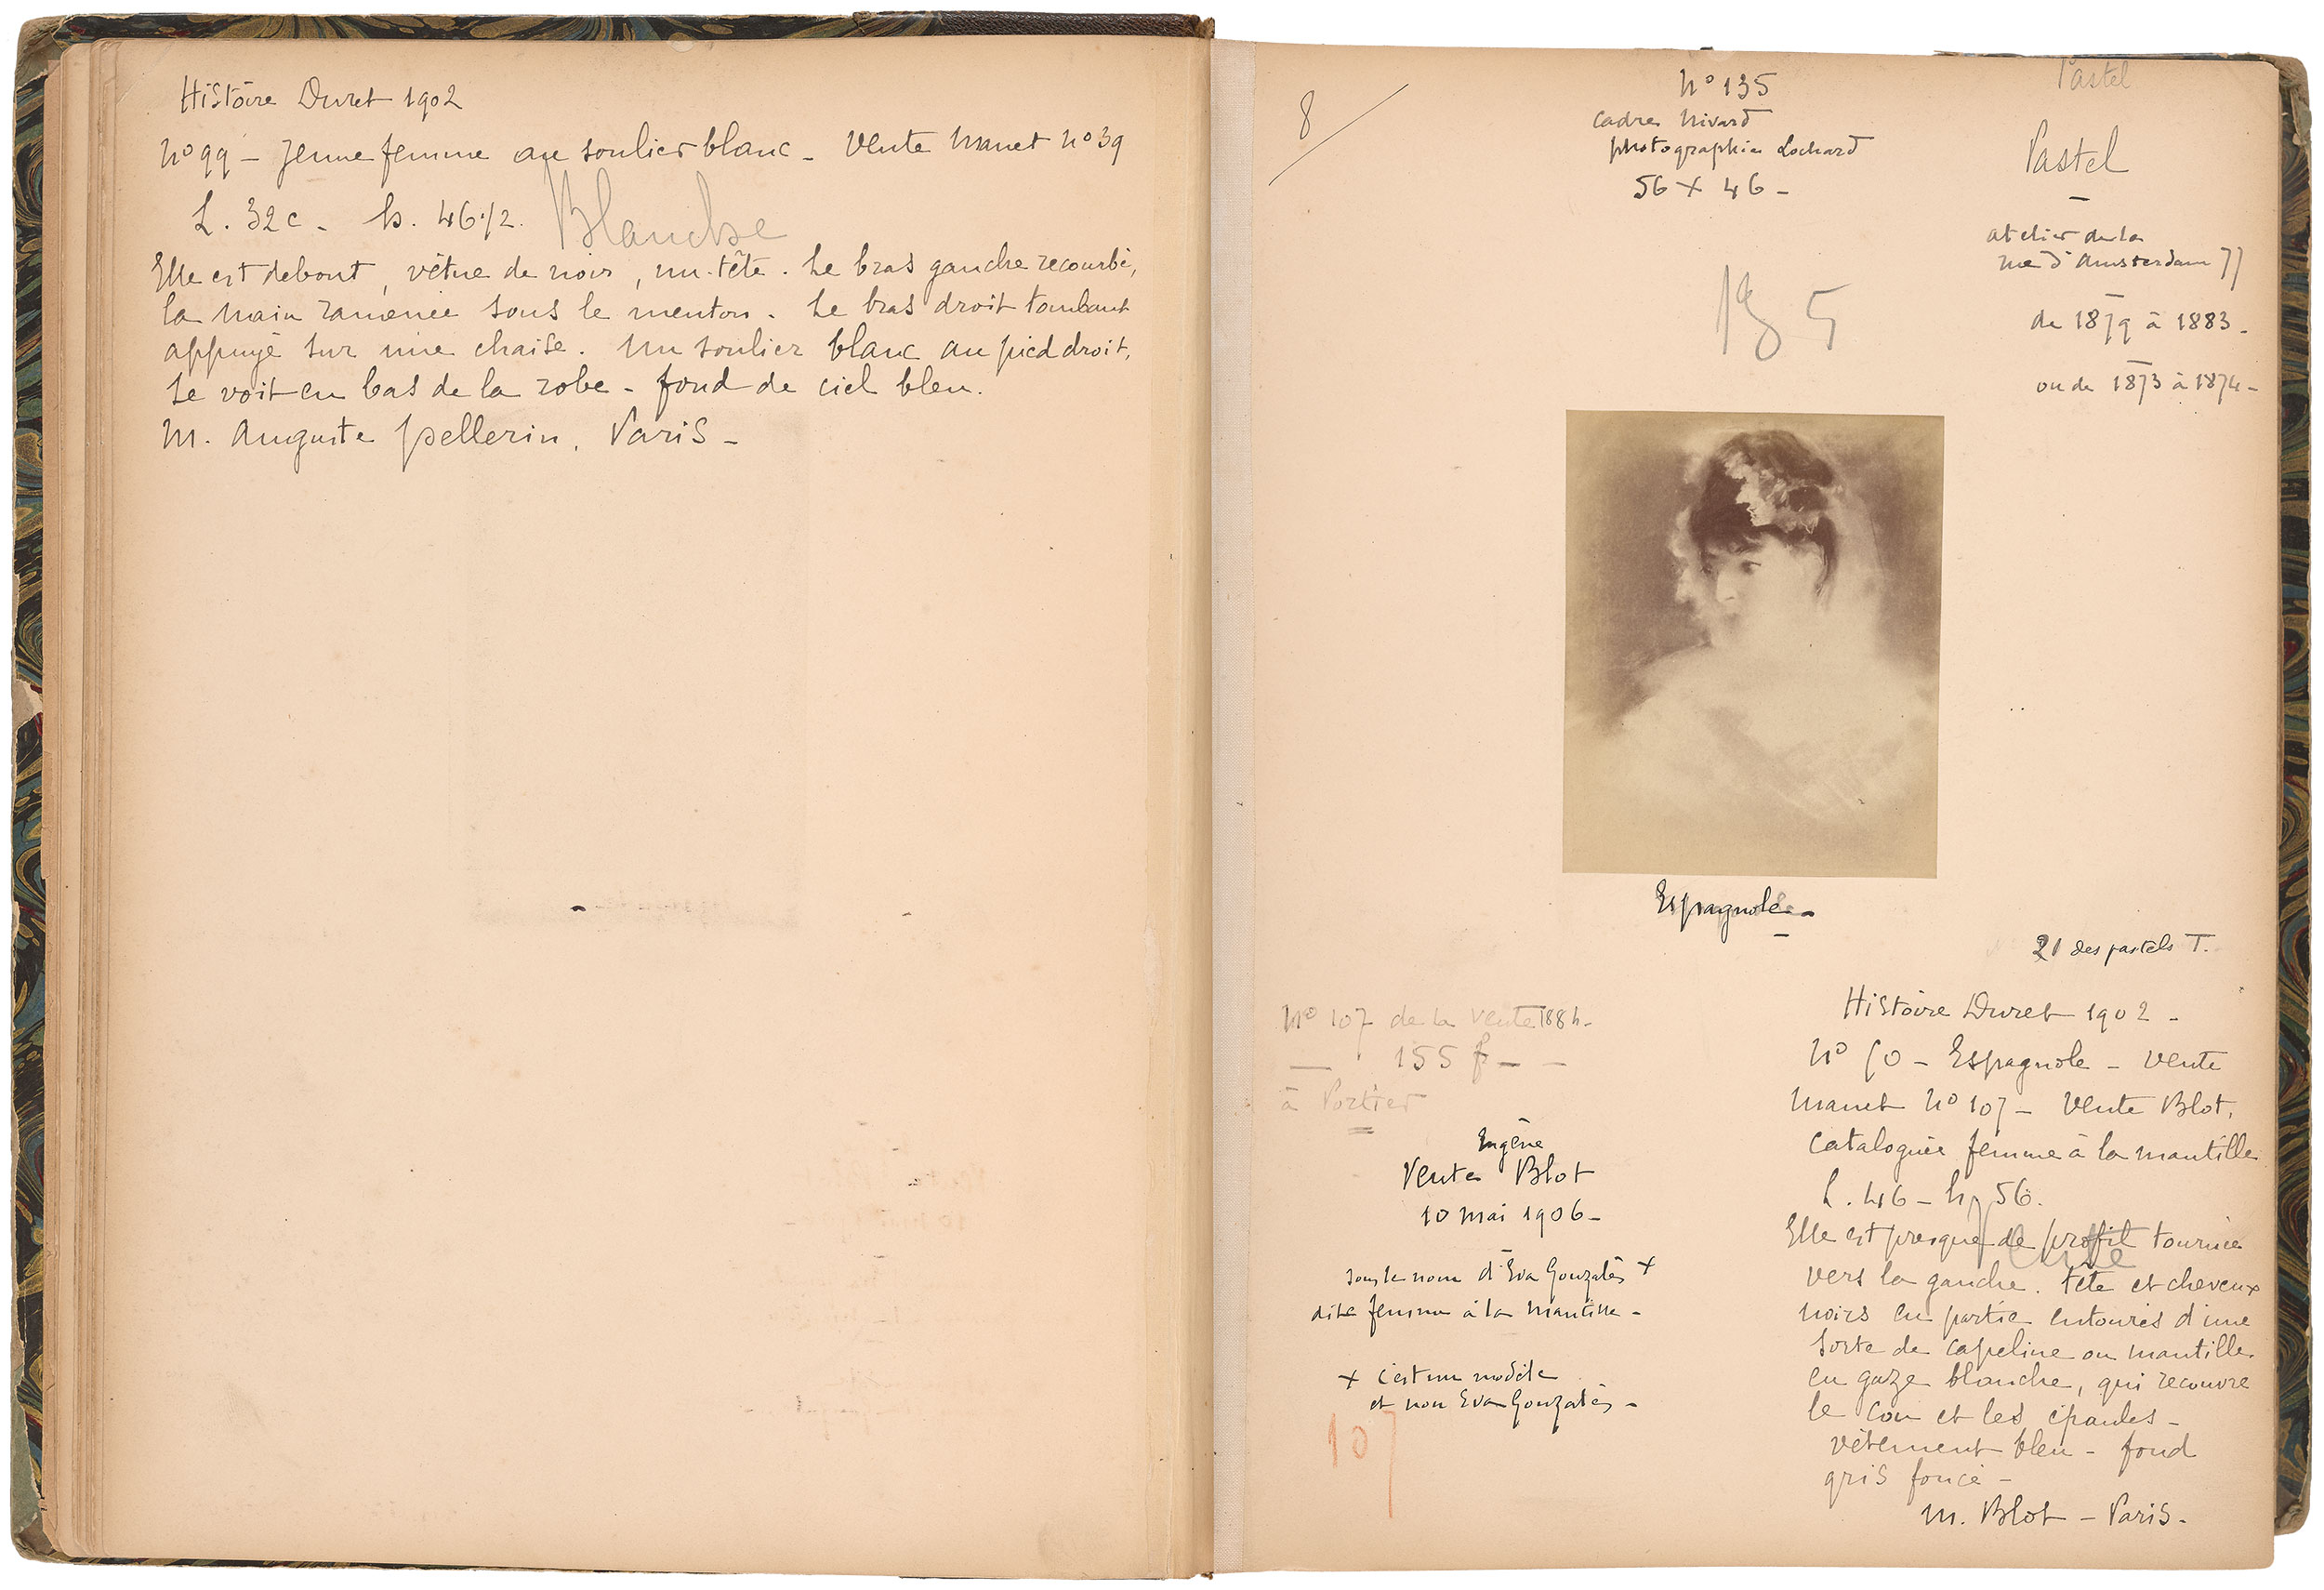 Histoire Duret 1902
No 99 – Jeune femme au soulier blanc – Vente Manet no 39
L. 32 c – h. 46 1/2.
Blanche
Elle est debout, vêtue de noir, nu-tête. Le bras gauche recourbé,
la main ramenée sous le menton. Le bras droit tombant
appuyé sur une chaise. Un soulier blanc au pied droit,
se voit en bas de la robe – fond de ciel bleu.
M. Auguste Pellerin, Paris –
8
No 135
cadre Nivard
photographie Lochard
56 x 46 –
Pastel
Pastel
atelier de la
rue d'Amsterdam 77
de 1879 à 1883 –
ou de 1873 à 1874 –
Espagnole –
21 des pastels T.
No 107 de la vente 1884 –
155 f –
à Portier
Eugène
Vente Blot
10 mai 1906 –
sous le nom d'Eva Gonzalès +
dite femme à la mantille –
+ c'est un modèle
et non Eva Gonzalès –
107
Histoire Duret 1902 –
No 90 – Espagnole – Vente
Manet No 107 – Vente Blot,
cataloguée femme à la mantille
L. 46 – h. 56.
Elle est presque de profil tournée
vers la gauche. tête et cheveux
noirs en partie entourés d'une
sorte de capeline ou mantille
en gaze blanche, qui recouvre
le cou et les épaules –
vêtement bleu – fond
gris foncé –
M. Blot – Paris –